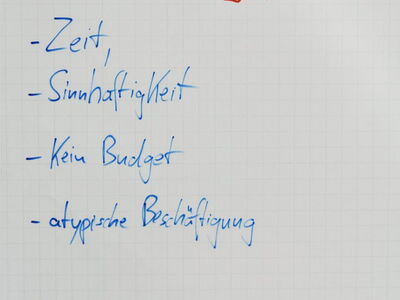 - Zeit,
- Sinnhaftigkeit
- Kein Budget
- atypische Beschäftigung